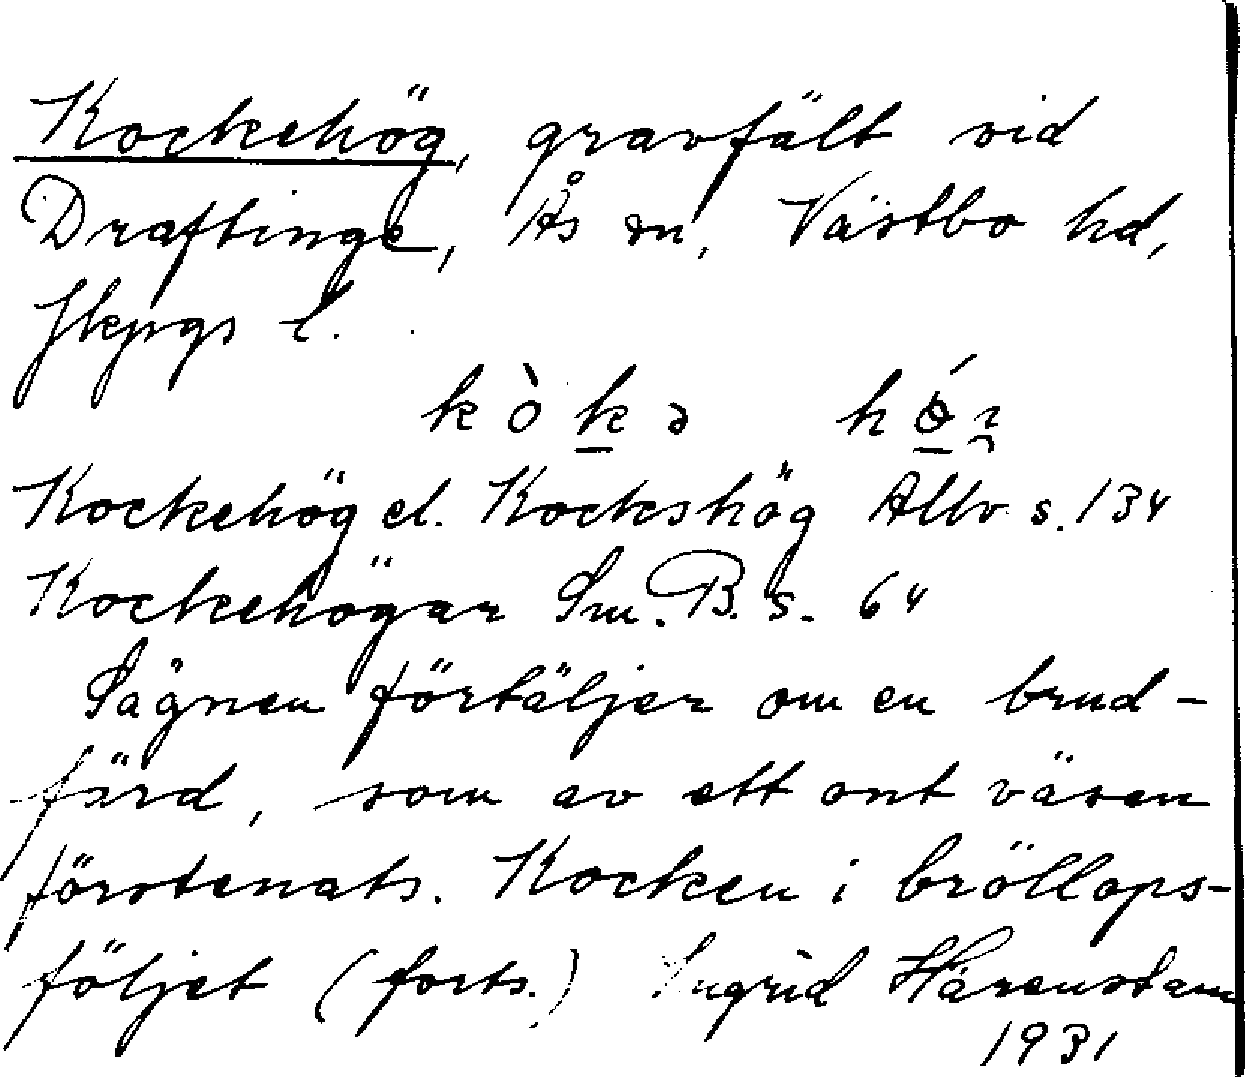 Kockehög, gravfält vid
Draftinge, Ås sn, Västbo hd,
Jkpgs l.
kòkə
Kockehög el. Kockshög Allv s. 134
Kockehögar Sm. B. s. 64
Sägnen förtäljer om en brud-
färd, som av ett ont väsen
förstenats. Kocken i bröllops-
följet (forts.) Ingrid Härenstam
1931